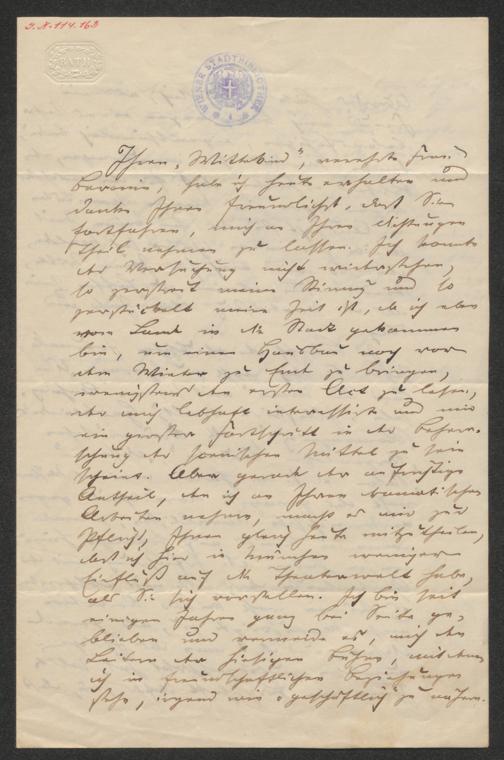 J.N. 114.163
BATH
WIENER STADTBIBLIOTHEK
Ihren „Wittekind", verehrte Frau
Baronin, habe ich heute erhalten und
danke Ihnen freundlichst, daß Sie
fortfahren, mich an Ihren Dichtungen
Theil nehmen zu lassen. Ich konnte
der Versuchung nicht widerstehen,
so zerstreut meine Stimmung und so
zerstückelt meine Zeit ist, da ich eben
vom Lande in die Stadt gekommen
bin, um einen Hausbau noch vor
dem Winter zu Ende zu bringen,
wenigstens den ersten Act zu lesen,
der mich lebhaft interessirt und mir
ein großer Fortschritt in der Beherr-
schung der scenischen Mittel zu sein
scheint. Aber gerade der aufrichtige
Antheil, den ich an Ihren dramatischen
Arbeiten nehme, macht es mir zur
Pflicht, Ihnen gleich heute mitzutheilen,
daß ich hier in München weniger
Einfluß auf die Theaterwelt habe,
als Sie sich vorstellen. Ich bin seit
einigen Jahren ganz bei Seite ge-
blieben und vermeide es, mich den
Leitern der hiesigen Bühne, mit denen
ich in freundschaftlichen Beziehungen
stehe, irgend wie „geschäftlich" zu nähern.